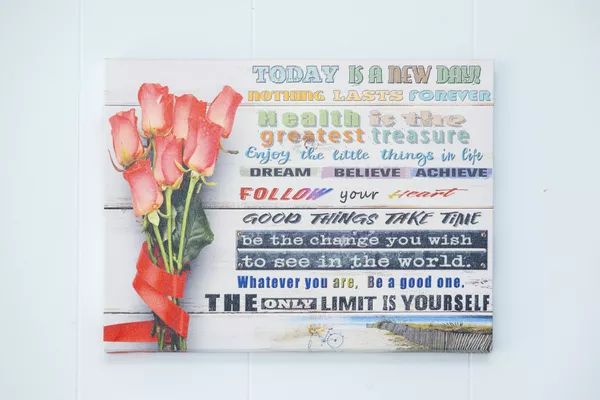 TODAY IS A NEW DAY!
NOTHING LASTS FOREVER
Health is the
greatest treasure
Enjoy the little things in life
DREAM BELIEVE ACHIEVE
FOLLOW your Heart
GOOD THINGS TAKE TIME
be the change you wish
to see in the world.
Whatever you are, Be a good one.
THE ONLY LIMIT IS YOURSELF